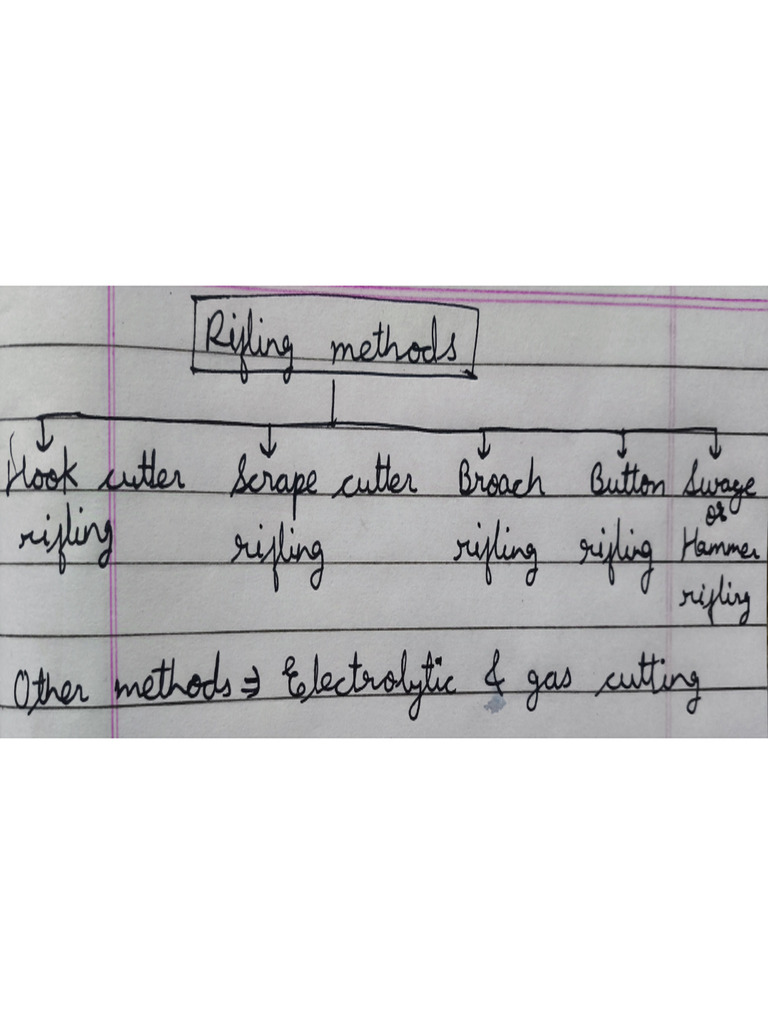 Rifling methods
Hook cutter rifling
Scrape cutter rifling
Broach rifling
Button rifling
Swage or Hammer rifling
Other methods ⇒ Electrolytic & gas cutting